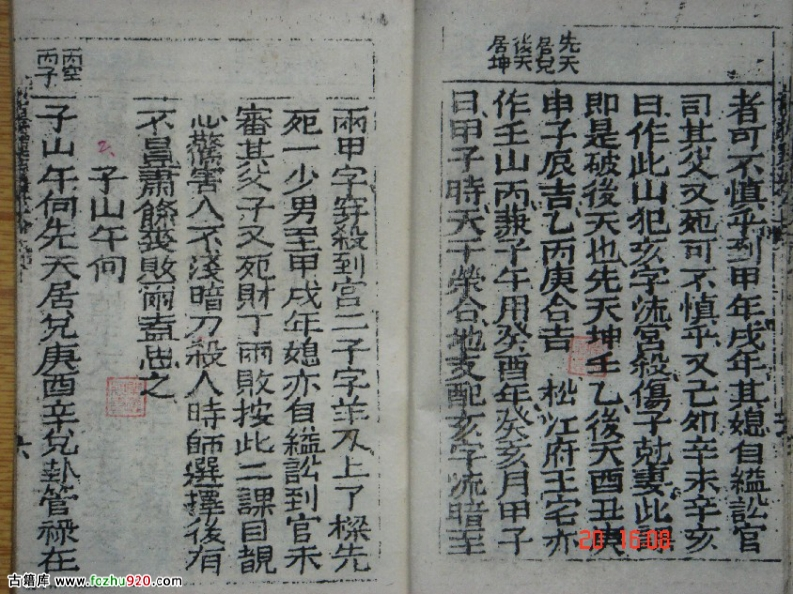 先天
居兌
後天
居坤
者可不慎乎到甲年戌年其媳自縊訟官
司其父又死可不慎乎又己卯辛未辛亥
日作此山犯亥字流宮殺傷子尅妻此課
即是破後天也先天坤壬乙後天酉丑庚
申子辰吉乙丙庚合吉 松江府王宅亦
作壬山丙兼子午用癸酉年癸亥月甲子
日甲子時天干榮合地支配亥字流暗至
丙空
丙子
兩甲字穿殺到宮二子字羊刃上了樑先
死一少男至甲戌年媳亦自縊訟到官未
審其父子又死財丁兩敗按此二課目覩
心驚害人不淺暗刀殺人時師選擇後有
不昌蕭條喪敗兩盍思之
子山午向
子山午向先天居兌庚酉辛兌卦管祿在
20 16:08
古籍库 www.fczhu920.com